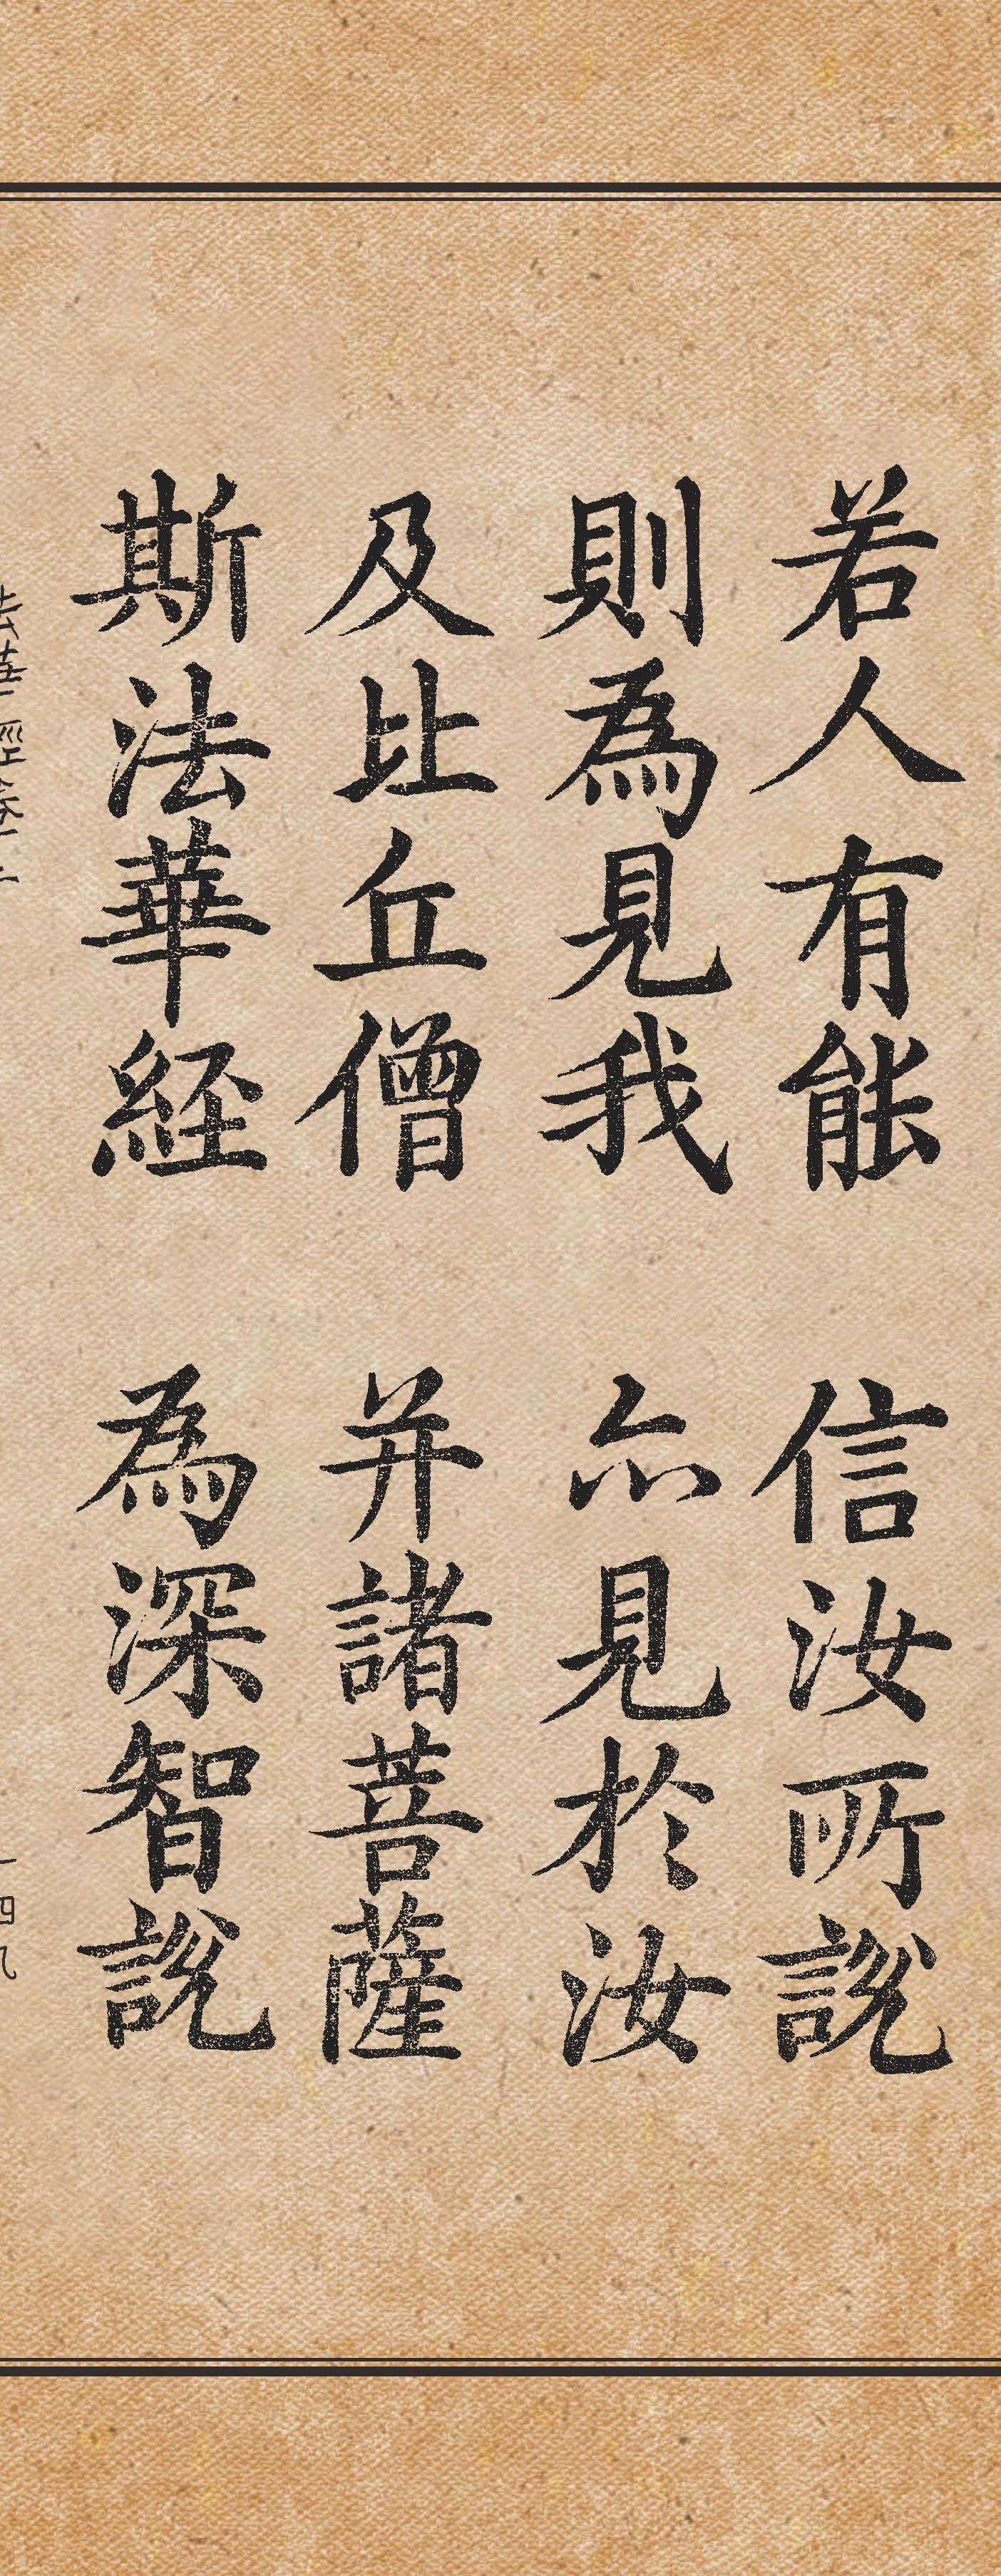 若人有能　信汝所說
則為見我　亦見於汝
及比丘僧　并諸菩薩
斯法華經　為深智說